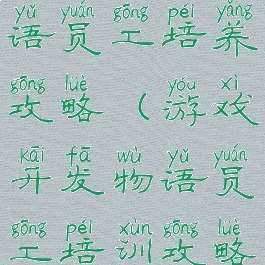 yǔ yuán gōng péi yǎng
语员工培养
gōng lüè yóu xì
攻略（游戏
kāi fā wù yǔ yuán
开发物语员
gōng péi xùn gōng lüè
工培训攻略